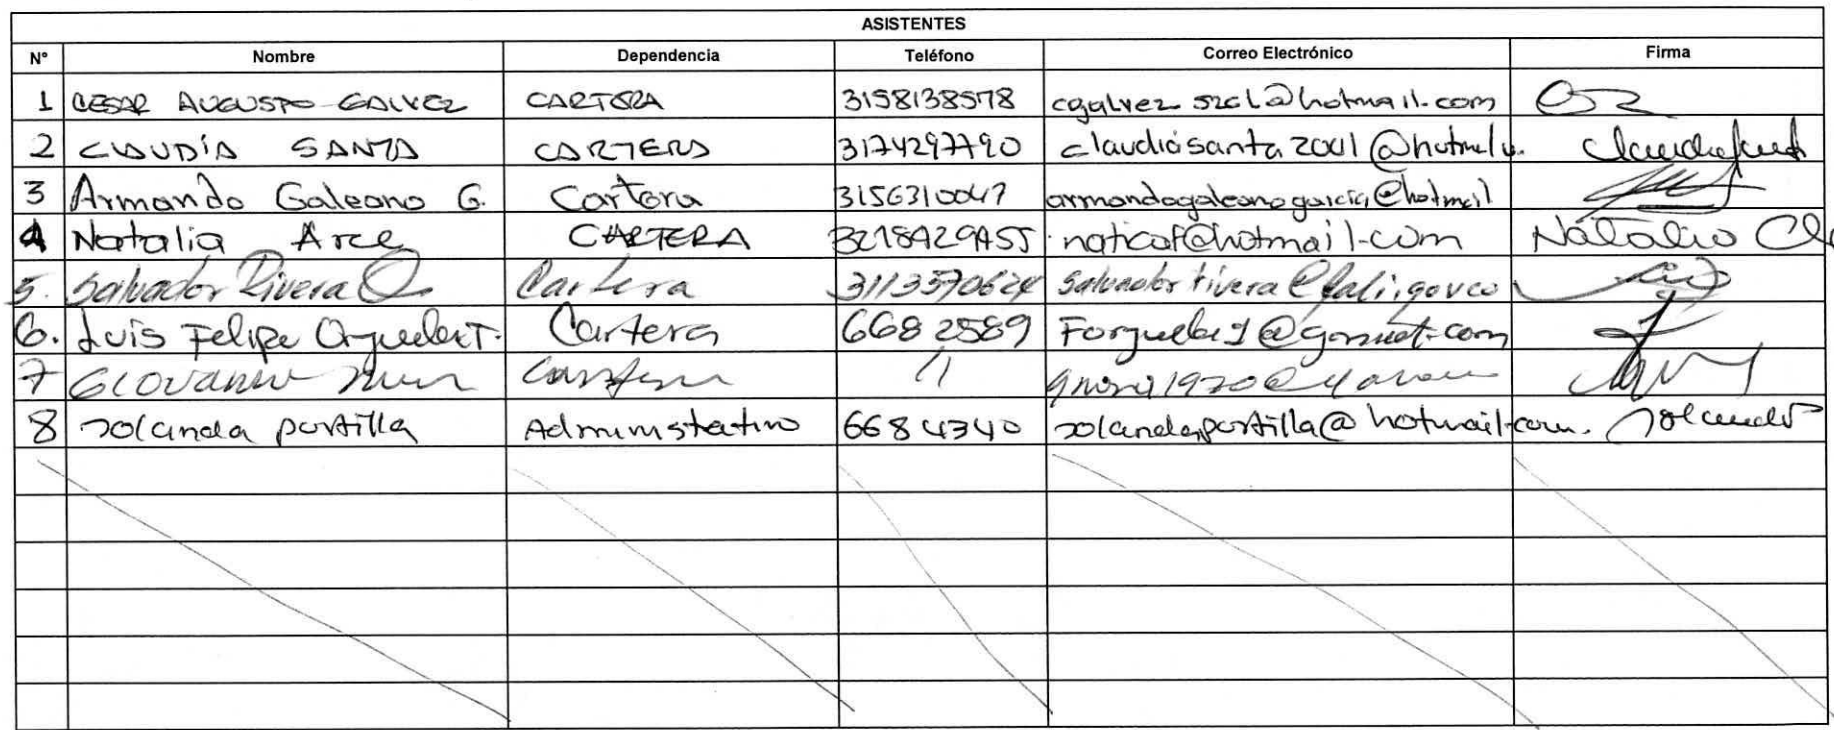 ASISTENTES
N° Nombre Dependencia Teléfono Correo Electrónico Firma
1 CESAR AUGUSTO GALVEZ CARTERA 3158138578
2 CLAUDÍA SANTA CARTERA 3174297790 claudiasanta2001@hotmail
3 Armando Galeano G. Cartera 3156310047 armandogaleanogarcia@hotmail
4 Natalia Arce CARTERA 3218429455 naticaf@hotmail.com Natalia
5. Salvador Rivera Cartera 3113570624 Salvador rivera@cali.govco
6. Luis Felipe Cartera 6682589
7 GIOVANNI Cartera 11
8 Yolanda portilla Administrativo 6684340 yolandaportilla@hotmail.com. Yolanda